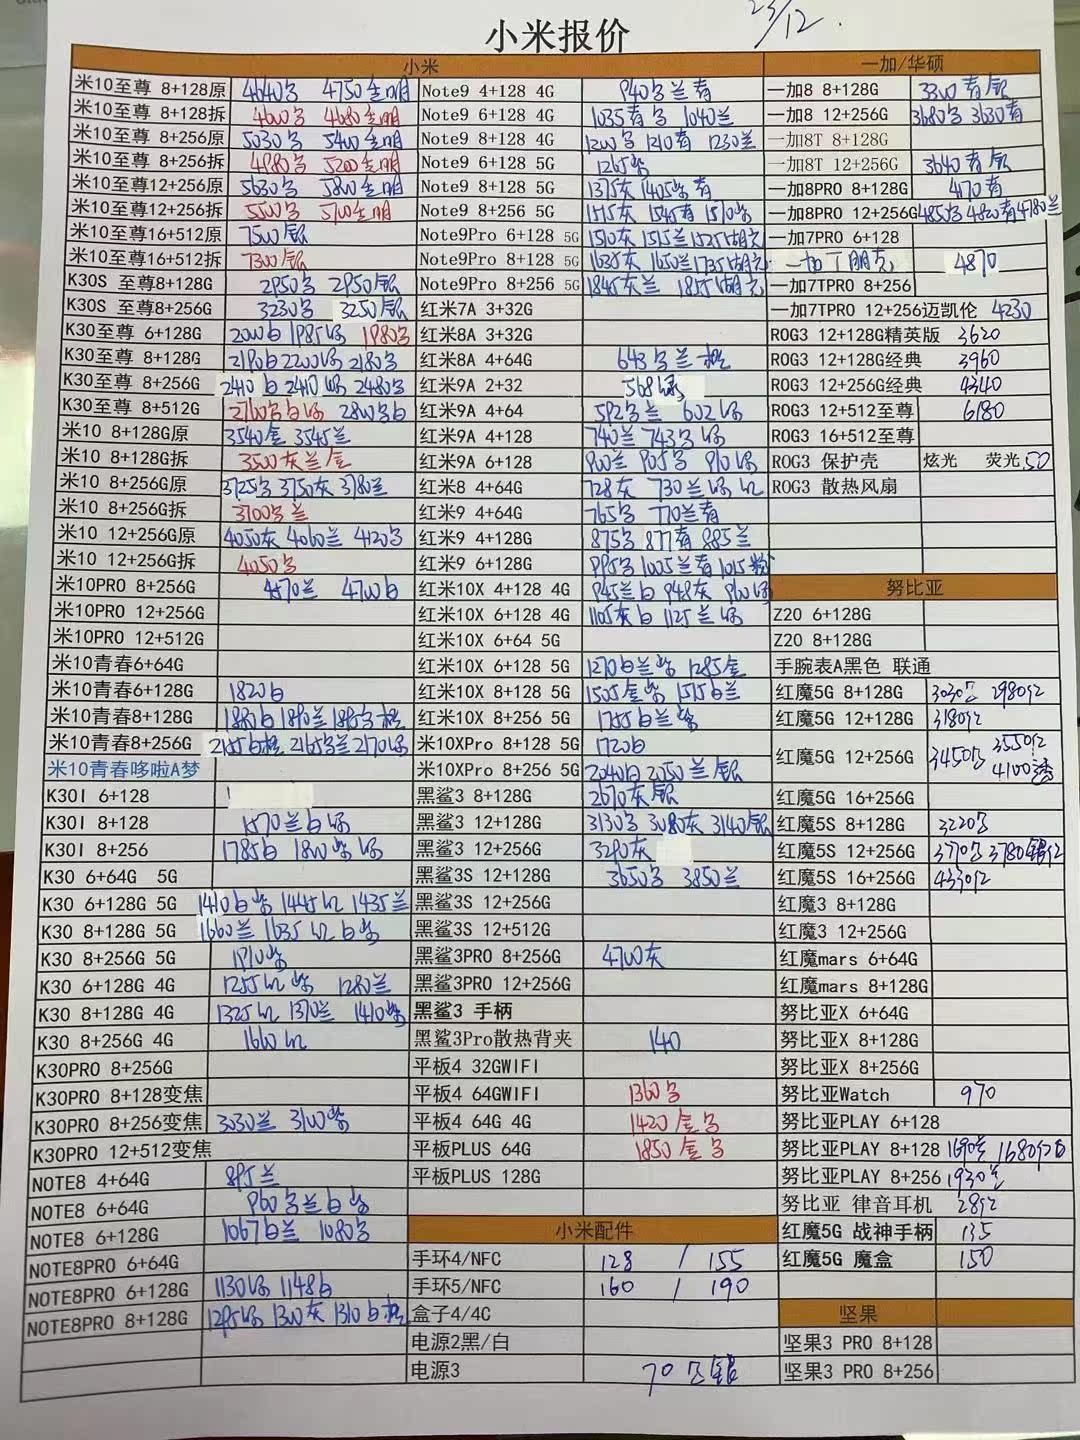 23/12.
小米报价
小米
一加/华硕
米10至尊 8+128原 4640 4750
米10至尊 8+128拆 4600 4680
米10至尊 8+256原 5030 5400
米10至尊 8+256拆 4980 5200
米10至尊12+256原 5630 5800
米10至尊12+256拆 5500 5700
米10至尊16+512原 7500银
米10至尊16+512拆 7300银
K30S 至尊8+128G 2950 2950银
K30S 至尊8+256G 3230 3250银
K30至尊 6+128G 2000白 1985绿 1980
K30至尊 8+128G 2190白 2200绿 2180
K30至尊 8+256G 2410白 2410绿 2480
K30至尊 8+512G 2700 白绿 2800 白
米10 8+128G原 3540金 3545兰
米10 8+128G拆 3500灰兰金
米10 8+256G原 3725 3750灰 3780兰
米10 8+256G拆 3700 兰
米10 12+256G原 4050灰 4060兰 4120
米10 12+256G拆 4050
米10PRO 8+256G 4570兰 4700白
米10PRO 12+256G
米10PRO 12+512G
米10青春6+64G
米10青春6+128G 1820白
米10青春8+128G 1880白 1890兰 1895
米10青春8+256G 2155白 2165 兰 2170绿
米10青春哆啦A梦
K30I 6+128
K30I 8+128 1570兰白绿
K30I 8+256 1785白 1800紫绿
K30 6+64G 5G
K30 6+128G 5G 1410白紫 1445红 1435兰
K30 8+128G 5G 1660兰 1635红白紫
K30 8+256G 5G 1910紫
K30 6+128G 4G 1255红紫 1280兰
K30 8+128G 4G 1325红 1370兰 1410紫
K30 8+256G 4G 1660红
K30PRO 8+256G
K30PRO 8+128变焦
K30PRO 8+256变焦 3030兰 3100紫
K30PRO 12+512变焦
NOTE8 4+64G 895兰
NOTE8 6+64G 960 兰白紫
NOTE8 6+128G 1067白兰 1080
NOTE8PRO 6+64G
NOTE8PRO 6+128G 1130绿 1148白
NOTE8PRO 8+128G 1295绿 1300灰 1310白
Note9 4+128 4G 940 兰青
Note9 6+128 4G 1035青 1040兰
Note9 8+128 4G 1200 1210青 1230兰
Note9 6+128 5G 1265紫
Note9 8+128 5G 1375灰 1405紫青
Note9 8+256 5G 1515灰 1545青 1570紫
Note9Pro 6+128 5G 1510灰 1515兰 1525湖光
Note9Pro 8+128 5G 1635灰 1650兰 1735湖光
Note9Pro 8+256 5G 1845灰兰 1855湖光
红米7A 3+32G
红米8A 3+32G
红米8A 4+64G 643 兰
红米9A 2+32 568绿
红米9A 4+64 592 兰 602绿
红米9A 4+128 740兰 743 绿
红米9A 6+128 900兰 905 910绿
红米8 4+64G 728灰 730兰绿红
红米9 4+64G 765 770兰青
红米9 4+128G 875 877青 885兰
红米9 6+128G 995 1005兰青 1015粉
红米10X 4+128 4G 945兰白 948灰 960绿
红米10X 6+128 4G 1105灰白 1125兰绿
红米10X 6+64 5G
红米10X 6+128 5G 1270白兰紫 1285金
红米10X 8+128 5G 1505金紫 1515白兰
红米10X 8+256 5G 1755白兰紫
米10XPro 8+128 5G 1720白
米10XPro 8+256 5G 2040白 2050兰银
黑鲨3 8+128G 2670灰银
黑鲨3 12+128G 3130 3080灰 3140银
黑鲨3 12+256G 3290灰
黑鲨3S 12+128G 3650 3850兰
黑鲨3S 12+256G
黑鲨3S 12+512G
黑鲨3PRO 8+256G 4700灰
黑鲨3PRO 12+256G
黑鲨3 手柄
黑鲨3Pro散热背夹 140
平板4 32GWIFI
平板4 64GWIFI 1360
平板4 64G 4G 1420金
平板PLUS 64G 1850金
平板PLUS 128G
小米配件
手环4/NFC 128 / 155
手环5/NFC 160 / 190
盒子4/4C
电源2黑/白
电源3 70 银
一加8 8+128G 3300青银
一加8 12+256G 3680 3630青
一加8T 8+128G
一加8T 12+256G 3640青银
一加8PRO 8+128G 4170青
一加8PRO 12+256G 4850 4820青 4780兰
一加7PRO 6+128
4870
一加7TPRO 8+256
一加7TPRO 12+256迈凯伦 4230
ROG3 12+128G精英版 3620
ROG3 12+128G经典 3960
ROG3 12+256G经典 4340
ROG3 12+512至尊 6180
ROG3 16+512至尊
ROG3 保护壳 炫光 荧光 50
ROG3 散热风扇
努比亚
Z20 6+128G
Z20 8+128G
手腕表A黑色 联通
红魔5G 8+128G 3030 2980红
红魔5G 12+128G 3180红
红魔5G 12+256G 3450 3550红 4100透
红魔5G 16+256G
红魔5S 8+128G 3220
红魔5S 12+256G 3770 3780银红
红魔5S 16+256G 4330红
红魔3 8+128G
红魔3 12+256G
红魔mars 6+64G
红魔mars 8+128G
努比亚X 6+64G
努比亚X 8+128G
努比亚X 8+256G
努比亚Watch 970
努比亚PLAY 6+128
努比亚PLAY 8+128 1690 1680
努比亚PLAY 8+256 1930
努比亚 律音耳机 28红
红魔5G 战神手柄 135
红魔5G 魔盒 150
坚果
坚果3 PRO 8+128
坚果3 PRO 8+256